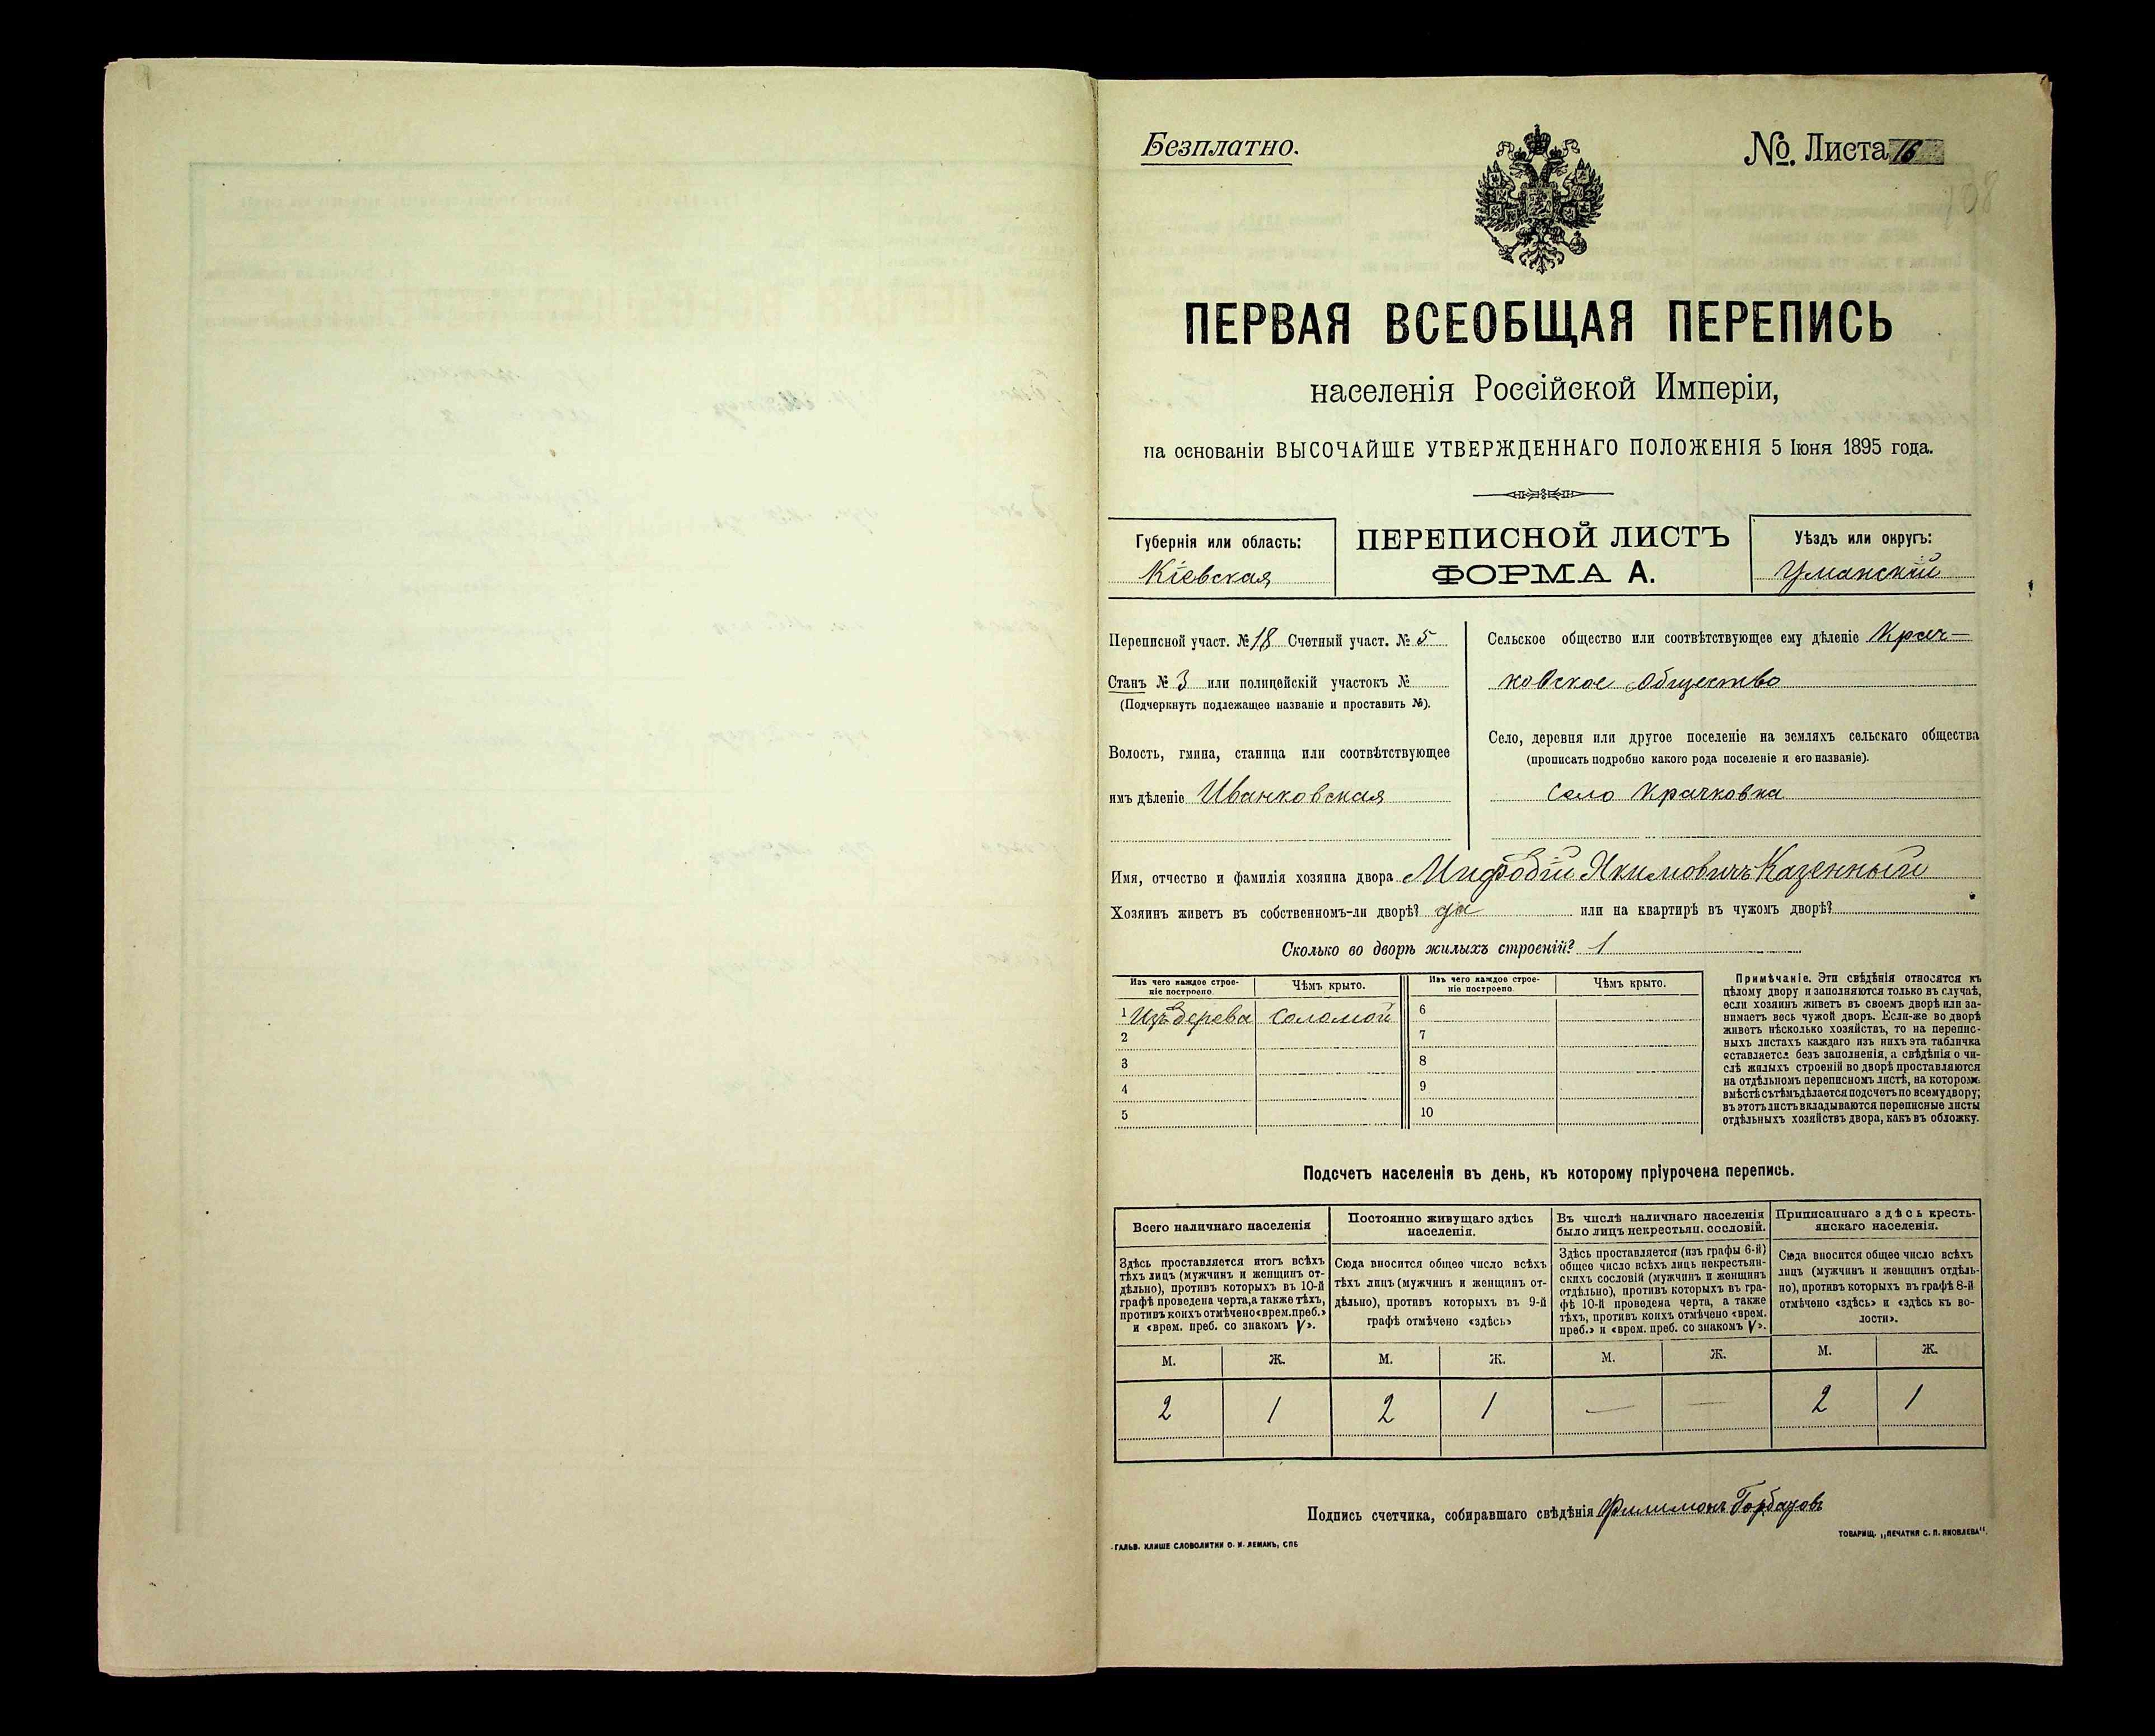 Безплатно.
№. Листа 16
108
ПЕРВАЯ ВСЕОБЩАЯ ПЕРЕПИСЬ
населенія Россійской Имперіи,
на основаніи ВЫСОЧАЙШЕ УТВЕРЖДЕННАГО ПОЛОЖЕНІЯ 5 Іюня 1895 года.
Губернія или область:
Кіевская
ПЕРЕПИСНОЙ ЛИСТЪ
ФОРМА А.
Уѣздъ или округъ:
Уманскій
Переписной участ. № 18 Счетный участ. № 5
Станъ № 3 или полицейскій участокъ №
(Подчеркнуть подлежащее названіе и проставить №).
Волость, гмина, станица или соотвѣтствующее
имъ дѣленіе Иваньковская
Сельское общество или соотвѣтствующее ему дѣленіе Крач-
ковское общество
Село, деревня или другое поселеніе на земляхъ сельскаго общества
(прописать подробно какого рода поселеніе и его названіе).
Село Крачковка
Имя, отчество и фамилія хозяина двора Мифодій Якимовичъ Казенный
Хозяинъ живетъ въ собственномъ-ли дворѣ? да или на квартирѣ въ чужомъ дворѣ?
Сколько во дворѣ жилыхъ строеній? 1
Изъ чего каждое строе-
ніе построено
Чѣмъ крыто.
Изъ чего каждое строе-
ніе построено
Чѣмъ крыто.
1 Изъ дерева соломой 6
2 7
3 8
4 9
5 10
Примѣчаніе. Эти свѣдѣнія относятся къ
цѣлому двору и заполняются только въ случаѣ,
если хозяинъ живетъ въ своемъ дворѣ или за-
нимаетъ весь чужой дворъ. Если-же во дворѣ
живетъ нѣсколько хозяйствъ, то на перепис-
ныхъ листахъ каждаго изъ нихъ эта табличка
оставляется безъ заполненія, а свѣдѣнія о чи-
слѣ жилыхъ строеній во дворѣ проставляются
на отдѣльномъ переписномъ листѣ, на которомъ
вмѣстѣ съ тѣмъ дѣлается подсчетъ по всему двору;
въ этотъ листъ вкладываются переписные листы
отдѣльныхъ хозяйствъ двора, какъ въ обложку.
Подсчетъ населенія въ день, къ которому пріурочена перепись.
Всего наличнаго населенія
Здѣсь проставляется итогъ всѣхъ
тѣхъ лицъ (мужчинъ и женщинъ от-
дѣльно), противъ которыхъ въ 10-й
графѣ проведена черта, а также тѣхъ,
противъ коихъ отмѣчено «врем. преб.»
и «врем. преб. со знакомъ V».
Постоянно живущаго здѣсь
населенія.
Сюда вносится общее число всѣхъ
тѣхъ лицъ (мужчинъ и женщинъ от-
дѣльно), противъ которыхъ въ 9-й
графѣ отмѣчено «здѣсь»
Въ числѣ наличнаго населенія
было лицъ некрестьян. сословій.
Здѣсь проставляется (изъ графы 6-й)
общее число всѣхъ лицъ некрестьян-
скихъ сословій (мужчинъ и женщинъ
отдѣльно), противъ которыхъ въ гра-
фѣ 10-й проведена черта, а также
тѣхъ, противъ коихъ отмѣчено «врем.
преб.» и «врем. преб. со знакомъ V».
Приписаннаго здѣсь кресть-
янскаго населенія.
Сюда вносится общее число всѣхъ
лицъ (мужчинъ и женщинъ отдѣль-
но), противъ которыхъ въ графѣ 8-й
отмѣчено «здѣсь» и «здѣсь къ во-
лости».
М. Ж. М. Ж. М. Ж. М. Ж.
2 1 2 1 — — 2 1
Подпись счетчика, собиравшаго свѣдѣнія Филимонъ Горбачовъ
ГАЛЬВ. КЛИШЕ СЛОВОЛИТНИ О. И. ЛЕМАНЪ, СПБ
ТОВАРИЩ. „ПЕЧАТНЯ С. П. ЯКОВЛЕВА".